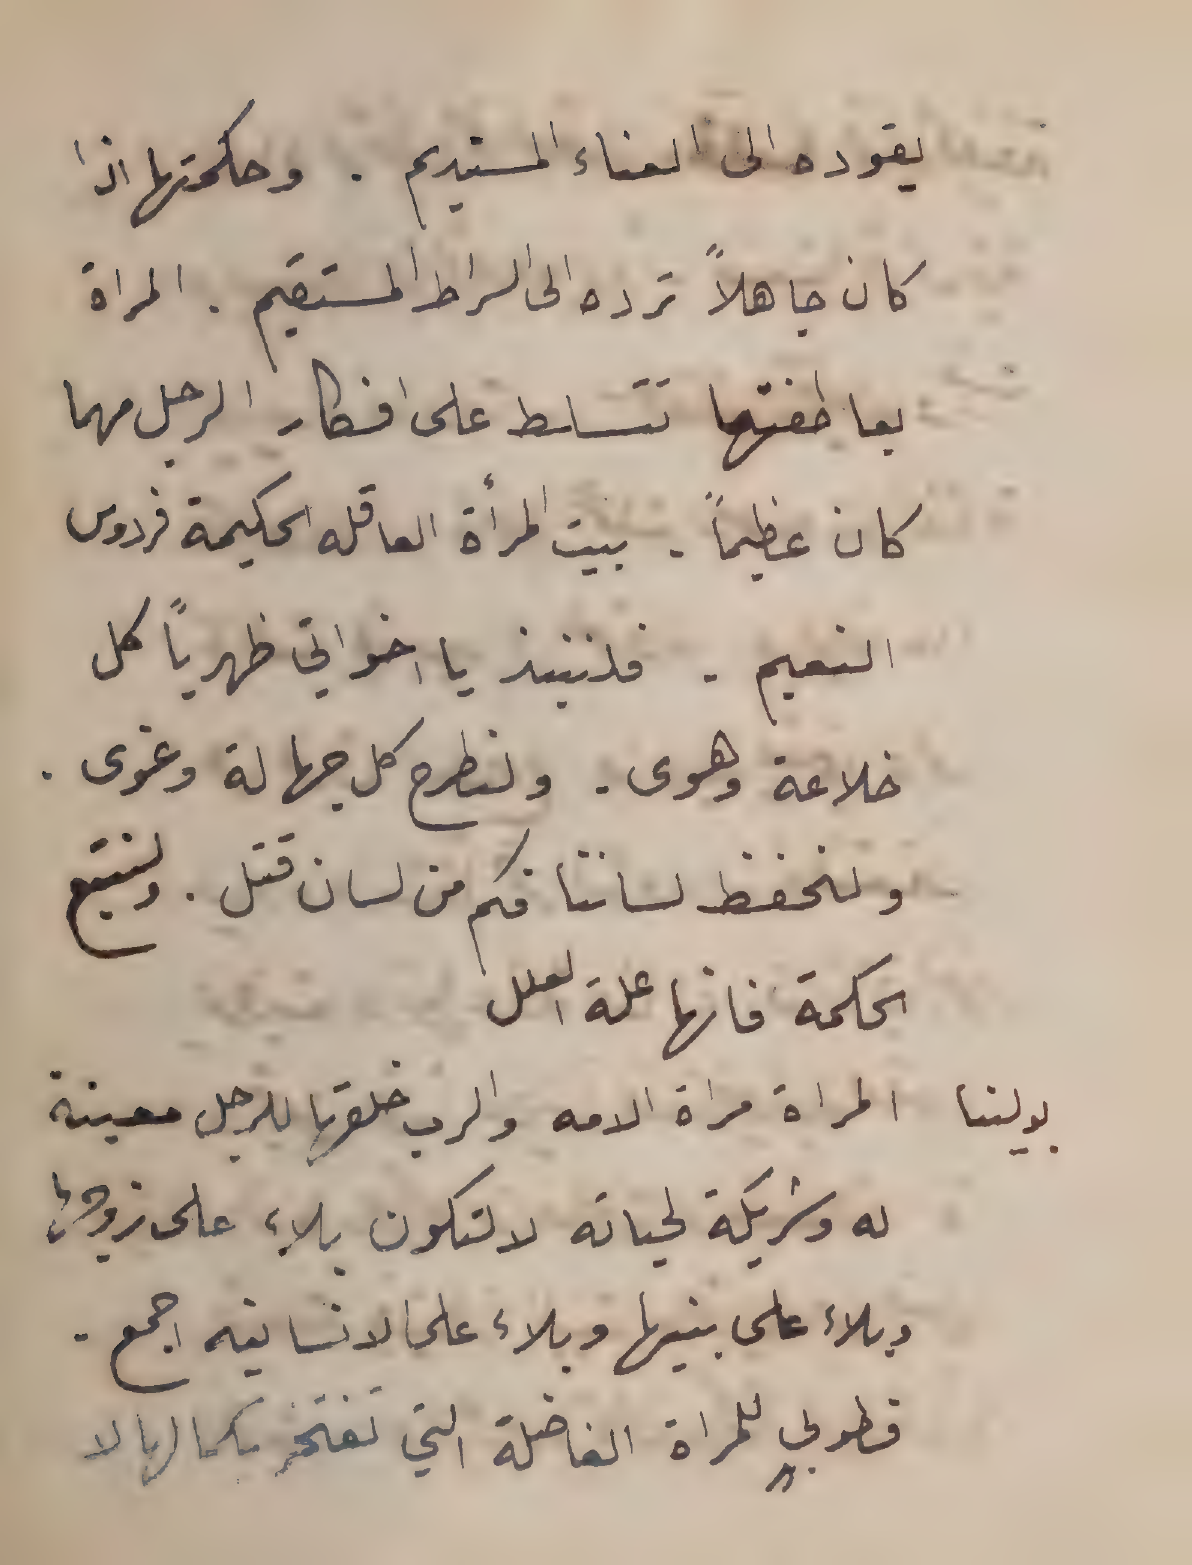 يقوده الى العناء المستديم . وحكمتها اذا
كان جاهلاً ترده الى السراط المستقيم . المراة
بعاطفتها تتسلط على افكار الرجل مهما
كان عظيماً . بيت المرأة العاقله الحكيمة فردوس
النعيم . فلننبذ يا اخواتي ظهرياً كل
خلاعة وهوى . ولنطرح كل جهالة وغوى .
ولنحفظ لساننا فكم من لسان قتل . ولنتبع
الحكمة فانها علة العلل
بولينا المراة مراة الامه والرب خلقها للرجل معينة
له وشريكة لحياته لا لتكون بلاء على زوجها
وبلاء على بنيها وبلاء على الانسانيه اجمع .
فطوبى للمراة الفاضلة التي تفتخر بكمالها لا